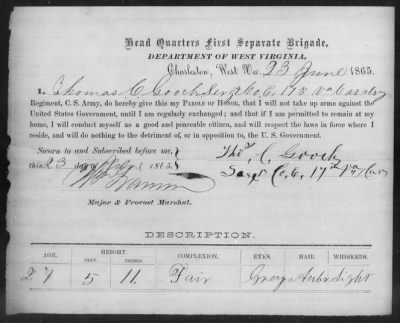 Head Quarters First Separate Brigade,
DEPARTMENT OF WEST VIRGINIA,
Charleston, West Va. 23 June 1865.
I, Thomas C. Gooch Serg't Co. C, 17th Va Cavalry
Regiment, C. S. Army, do hereby give this my PAROLE OF HONOR, that I will not take up arms against the
United States Government, until I am regularly exchanged; and that if I am permitted to remain at my
home, I will conduct myself as a good and peaceable citizen, and will respect the laws in force where I
reside, and will do nothing to the detriment of, or in opposition to, the U. S. Government.
Sworn to and Subscribed before me,
this 23 day of 1865.
Thos. C. Gooch
17th Va Cav
Major & Provost Marshal.
DESCRIPTION.
AGE. HEIGHT. COMPLEXION. EYES. HAIR. WHISKERS.
FEET. INCHES.
27 5 11. Fair Grey Light